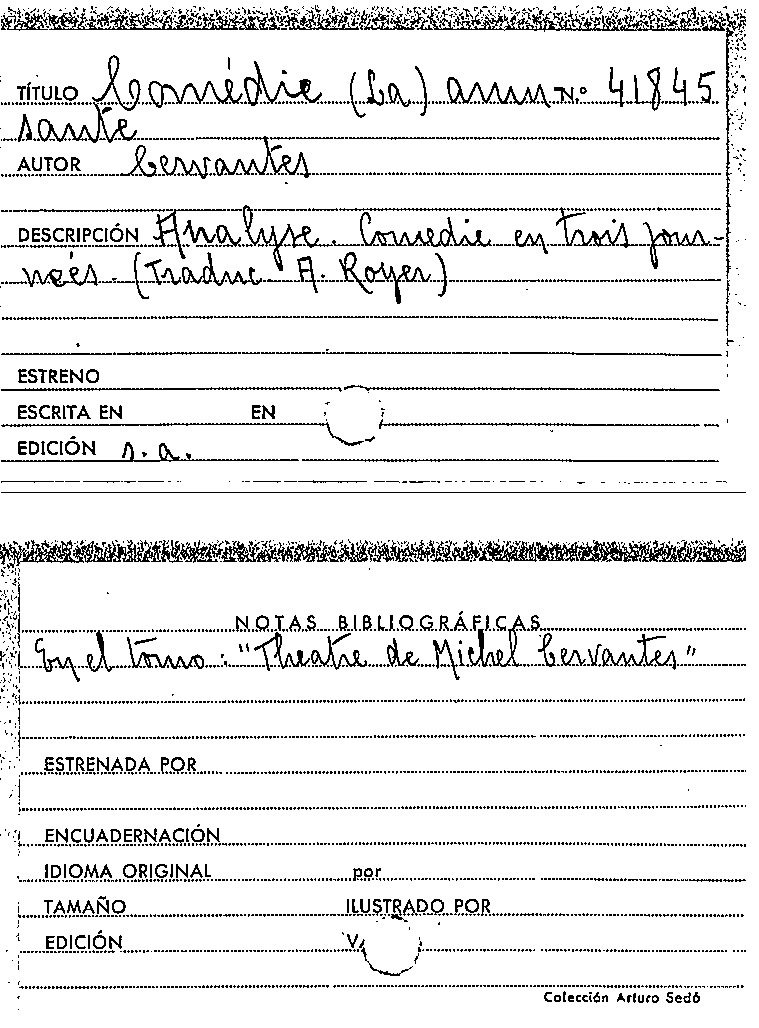 TÍTULO Comédie (La) amu N.º 41845
sante
AUTOR Cervantes
DESCRIPCIÓN Analyse. Comedie en trois jour-
neés. (Traduc. A. Royer)
ESTRENO
ESCRITA EN EN
EDICIÓN s. a.
NOTAS BIBLIOGRÁFICAS
En el tomo: "Theatre de Michel Cervantes"
ESTRENADA POR
ENCUADERNACIÓN
IDIOMA ORIGINAL por
TAMAÑO ILUSTRADO POR
EDICIÓN V.
Colección Arturo Sedó